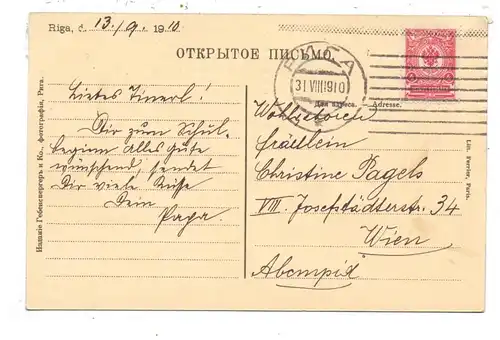 Riga, d. 13./9. 1910
ОТКРЫТОЕ ПИСЬМО.
РИГА
31 VIII 1910
Для адреса. — Adresse.
Liebes Tinerl!
Dir zum Schul-
beginn alles Gute
wünschend sendet
Dir viele Küsse
Dein
Papa.
Wohlgeboren
Fräulein
Christine Pagels
VIII. Josefstädterstr. 34
Wien
Австрія
Изданіе Гебенспергеръ и Ко. фотографія, Рига.
Lith. Ferrier, Paris.